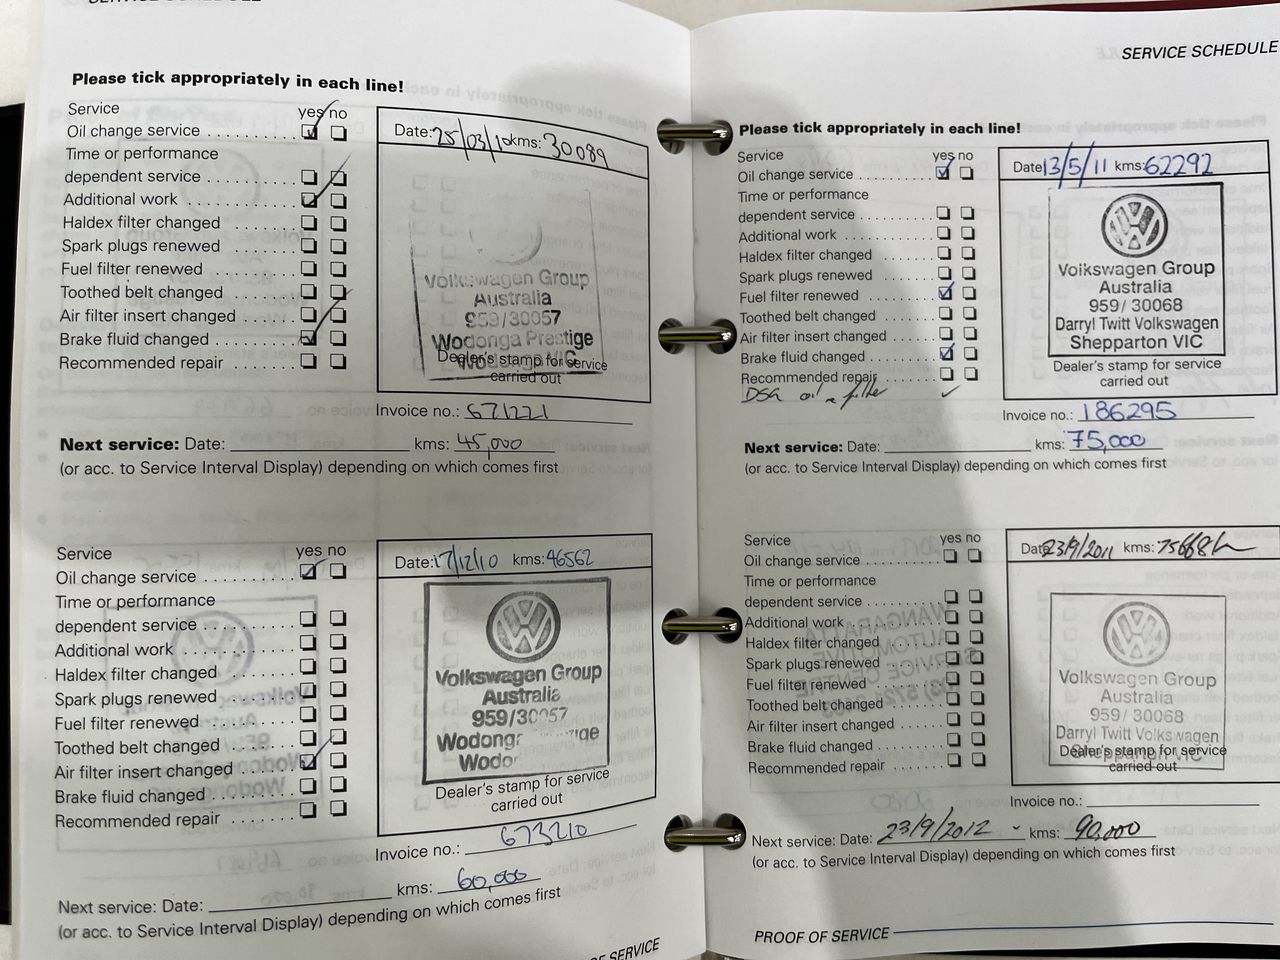 Please tick appropriately in each line!
Service yes no
Oil change service
Time or performance
dependent service
Additional work
Haldex filter changed
Spark plugs renewed
Fuel filter renewed
Toothed belt changed
Air filter insert changed
Brake fluid changed
Recommended repair
Date: 25/03/10 kms: 30089
Volkswagen Group
Australia
959/30057
Wodonga Prestige
Wodonga VIC
Dealer's stamp for service
carried out
Invoice no.: 671221
Next service: Date: kms: 45,000
(or acc. to Service Interval Display) depending on which comes first
Service yes no
Oil change service
Time or performance
dependent service
Additional work
Haldex filter changed
Spark plugs renewed
Fuel filter renewed
Toothed belt changed
Air filter insert changed
Brake fluid changed
Recommended repair
Date: 17/12/10 kms: 46562
Volkswagen Group
Australia
959/30057
Dealer's stamp for service
carried out
Invoice no.: 673210
Next service: Date: kms: 60,000
(or acc. to Service Interval Display) depending on which comes first
OF SERVICE
SERVICE SCHEDULE
Please tick appropriately in each line!
Service yes no
Oil change service
Time or performance
dependent service
Additional work
Haldex filter changed
Spark plugs renewed
Fuel filter renewed
Toothed belt changed
Air filter insert changed
Brake fluid changed
Recommended repair
DSG oil & filter
Date 13/5/11 kms: 62292
Volkswagen Group
Australia
959/ 30068
Darryl Twitt Volkswagen
Shepparton VIC
Dealer's stamp for service
carried out
Invoice no.: 186295
Next service: Date: kms: 75,000
(or acc. to Service Interval Display) depending on which comes first
Service yes no
Oil change service
Time or performance
dependent service
Additional work
Haldex filter changed
Spark plugs renewed
Fuel filter renewed
Toothed belt changed
Air filter insert changed
Brake fluid changed
Recommended repair
Date 23/9/2011 kms:
Volkswagen Group
Australia
959/ 30068
Darryl Twitt Volkswagen
Shepparton VIC
Dealer's stamp for service
carried out
Invoice no.:
Next service: Date: 23/9/2012 - kms: 90,000
(or acc. to Service Interval Display) depending on which comes first
PROOF OF SERVICE